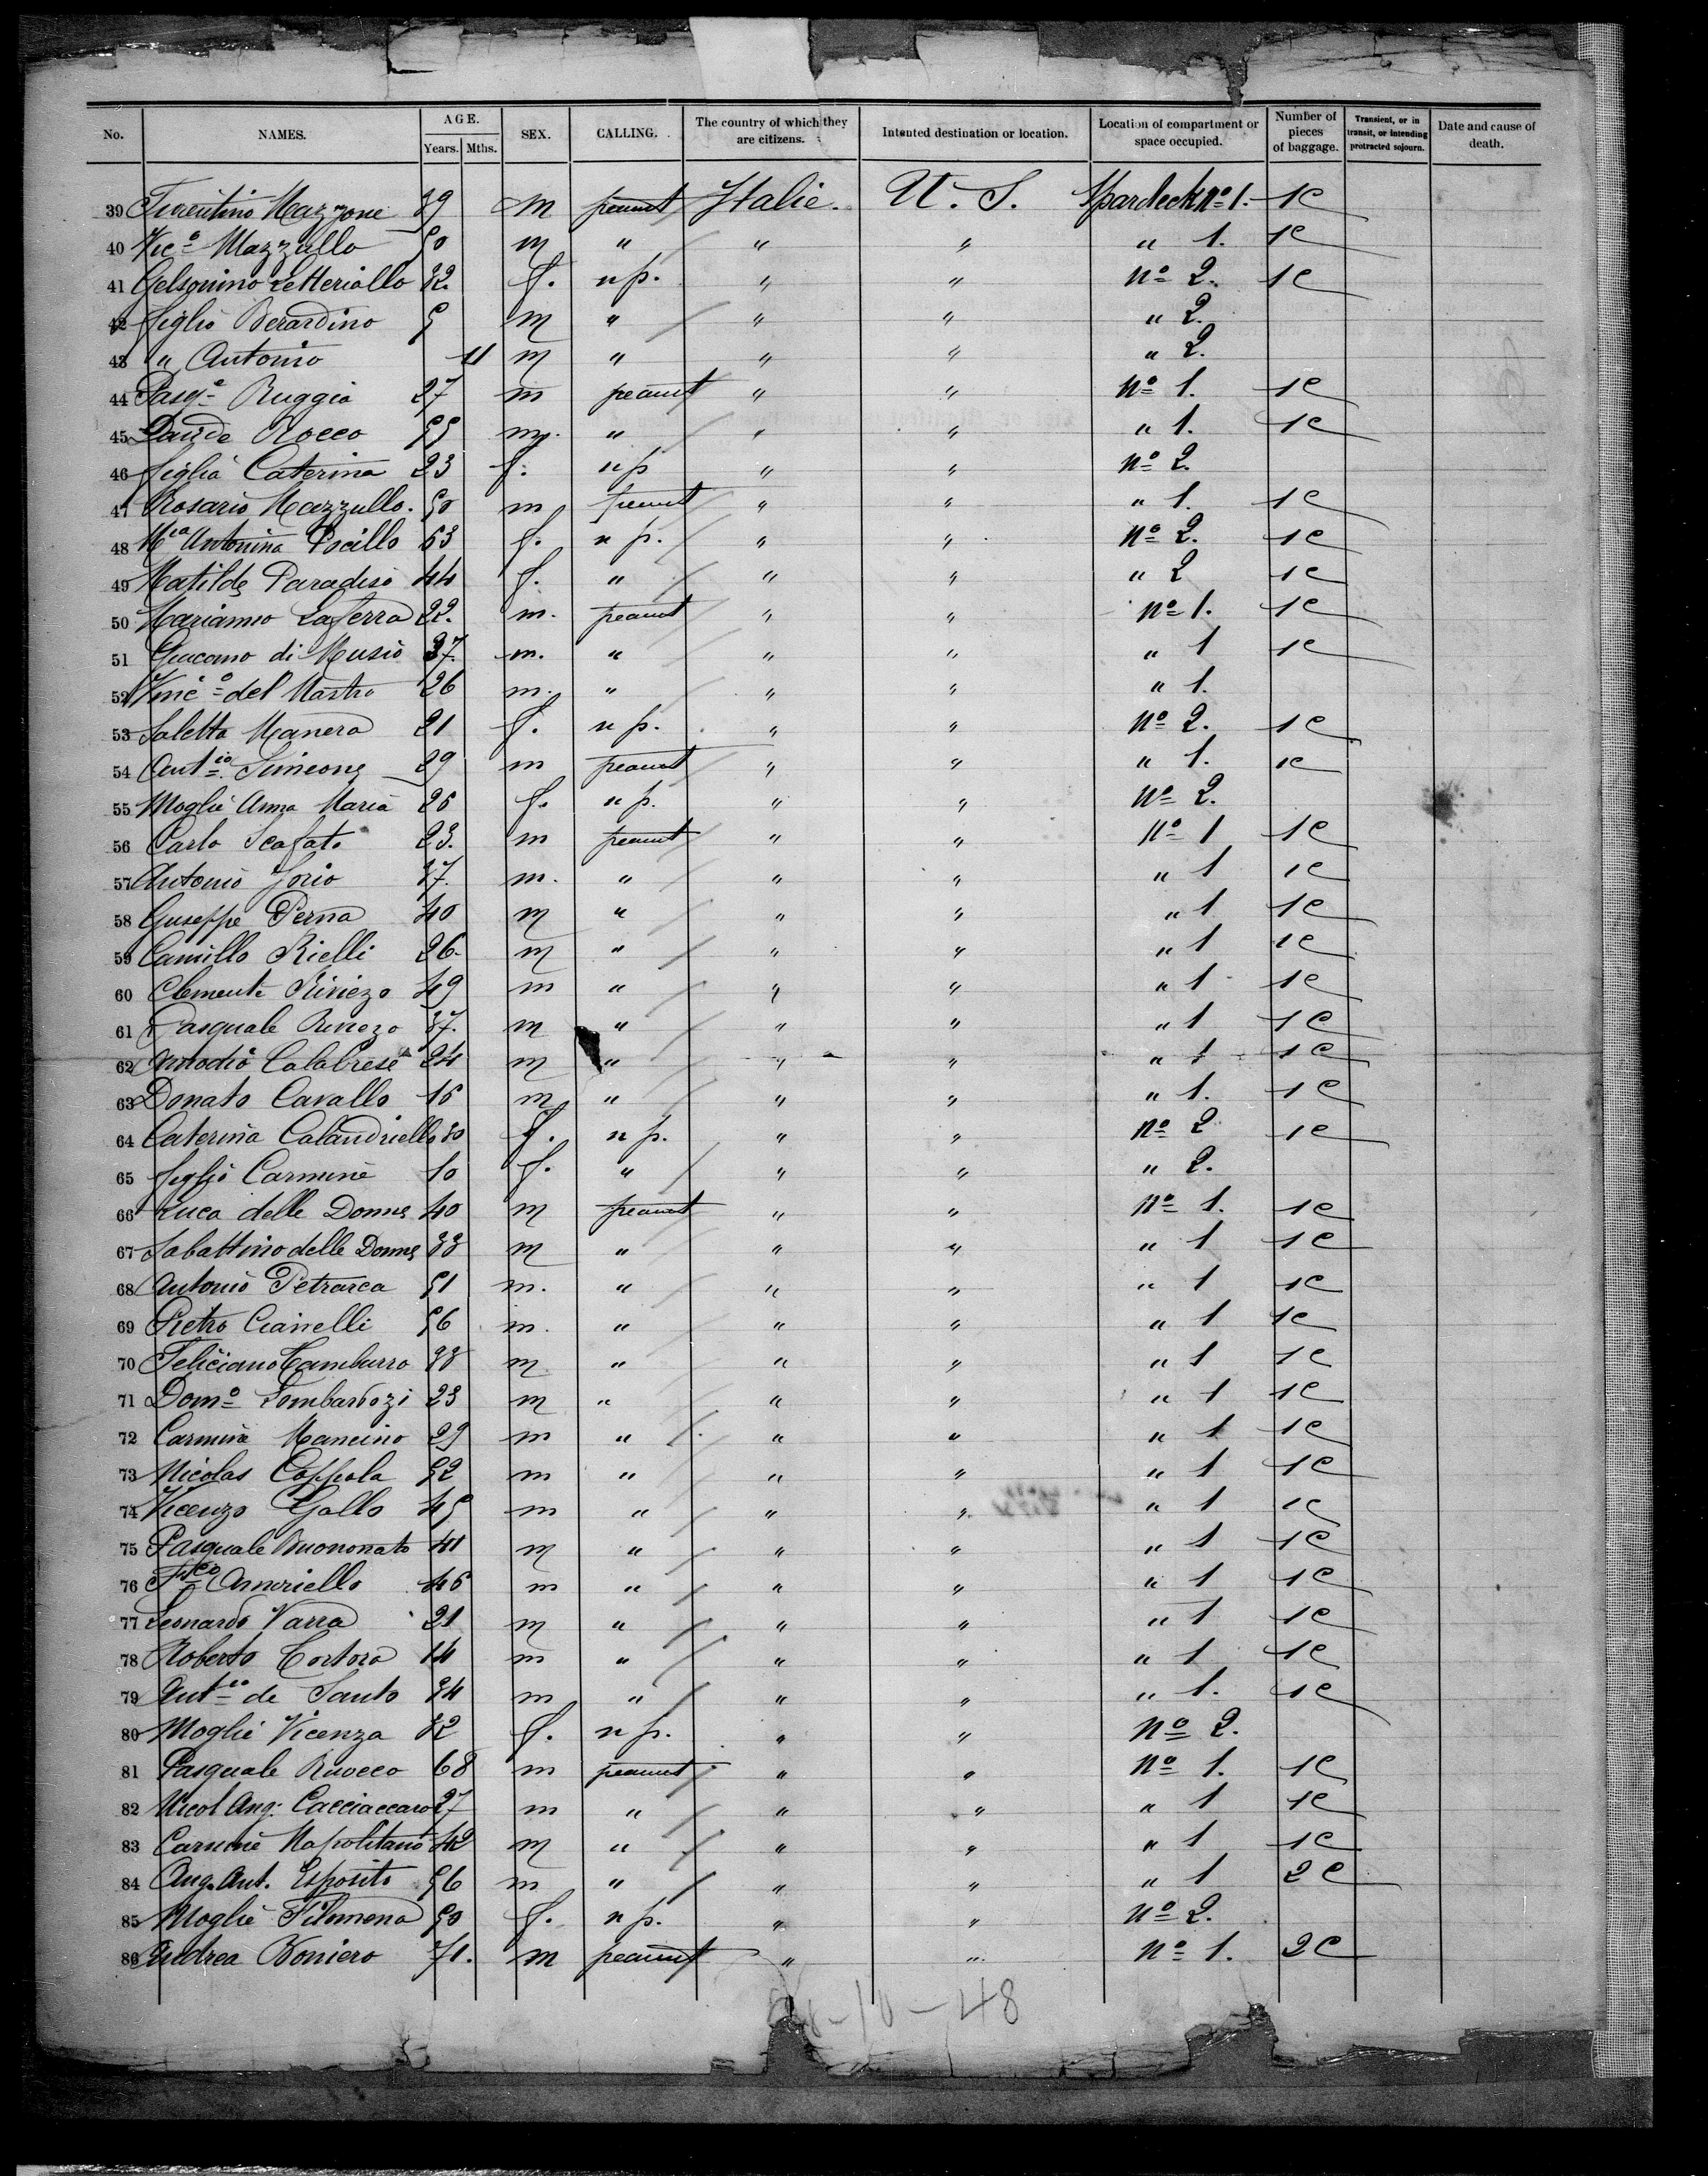 No. NAMES. AGE. Years. Mths. SEX. CALLING. The country of which they are citizens. Intented destination or location. Location of compartment or space occupied. Number of pieces of baggage. Transient, or in transit, or intending protracted sojourn. Date and cause of death.
39 Mazzone 39 m peasant Italie. U. S. Spardeck No 1. 1c
40 Vico Mazzullo 50 m " " " " 1. 1c
41 Letteriello 32. f. n p. " " No 2. 1c
42 figlio Berardino 5 m " " " " 2.
43 " Antonio 11 m " " " " 2.
44 Pasqe Ruggia 27 m peasant " " No 1. 1c
45 Rocco 55 m. " " " " 1. 1c
46 figlia Caterina 23 f. n p " " No 2.
47 Rosario Mazzullo. 50 m peasant " " " 1. 1c
48 Ma Antonina 53 f. n p. " " No 2. 1c
49 Matilde Paradiso 44 f. " " " " 2 1c
50 Marianno Laferra 22. m. peasant " " No 1. 1c
51 Giacomo di Musio 37. m. " " " " 1 1c
52 Vinco del Mastro 26 m. " " " " 1.
53 Saletta Manera 21 f. n p. " " No 2. 1c
54 Antio Simeone 29 m peasant " " " 1. 1c
55 Moglie Anna Maria 26 f. n p. " " No 2.
56 Carlo Scafato 23. m peasant " " No 1 1c
57 Antonio Jorio 37. m. " " " " 1 1c
58 Guseppe Perna 40 m " " " " 1 1c
59 Camillo Rielli 26. m " " " " 1 1c
60 Clemente Riviezo 49 m " " " " 1 1c
61 Pasquale Riviezo 37. m " " " " 1 1c
62 Calabrese 24 m " " " " 1 1c
63 Donato Cavallo 16 m " " " " 1. 1c
64 Caterina Calandriello 30 f. n p. " " No 2 1c
65 figlio Carmine 10 f. " " " " 2.
66 Luca delle Donne 40 m peasant " " No 1. 1c
67 Sabattino delle Donne 33 m " " " " 1 1c
68 Antonio Petrarca 51 m. " " " " 1 1c
69 Pietro Cianelli 56 m. " " " " 1 1c
70 Feliciano Tamburro 38 m " " " " 1 1c
71 Domo Lombardozi 23 m " " " " 1 1c
72 Carmine Mancino 29 m " " " " 1 1c
73 Nicolas Coppola 52 m " " " " 1 1c
74 Vicenzo Gallo 45 m " " " " 1 1c
75 Pasquale Buononato 41 m " " " " 1 1c
76 Fsco Amoriello 46 m " " " " 1 1c
77 Leonardo Varra 21 m " " " " 1 1c
78 Roberto Tortora 14 m " " " " 1 1c
79 Antio de Santo 34 m " " " " 1. 1c
80 Moglie Vicenza 32 f. n p. " " No 2.
81 Pasquale Ruocco 68 m peasant " " No 1. 1c
82 Nicol Ang. Cacciaccaro 27 m " " " " 1 1c
83 Carmine Napolitano 42 m " " " " 1 1c
84 Ang. Ant. Esposito 56 m " " " " 1 2c
85 Moglie Filomena 50 f. n p. " " No 2.
86 Andrea Boniero 71. m peasant " " No 1. 2c
-10-48